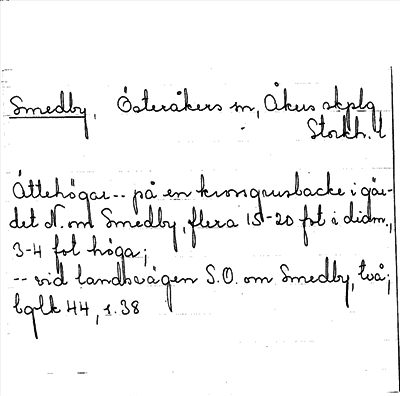 Smedby, Österåkers sn, Åkers skplg
Stockh. l
Ättehögar -- på en krongrusbacke i gär-
det N. om Smedby, flera 15-20 fot i diam.,
3-4 fot höga;
-- vid landsvägen S.O. om Smedby, två;
bqlk 44, s. 38